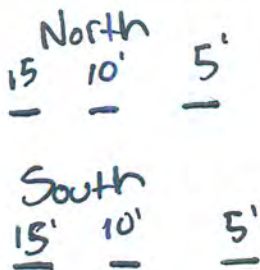 North
15 10' 5'
South
15' 10' 5'